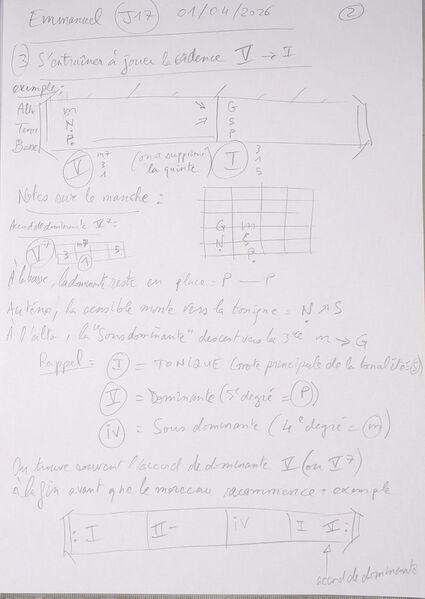 Emmanuel J17 01/04/2026 2
3 S'entraîner à jouer la cadence V → I
exemple:
Alto m G
Tenor N S
Basse P P
V m7 3 1 (on a supprimé I 3 1 5
la quinte)
Notes sur le manche :
G m
N S
P
Accord de dominante V7 =
V7 3 m7 1 5
À la basse, la dominante reste en place = P — P
Au ténor, la sensible monte vers la tonique = N ↗ S
A l'alto, la "sous dominante" descend vers la 3rce m → G
Rappel = I = TONIQUE (note principale de la tonalité = S)
V = Dominante (5e degré = P)
iv = Sous dominante (4e degré = m)
On trouve souvent l'accord de dominante V (ou V7)
à la fin avant que le morceau recommence = exemple
I II- iv I V
accord de dominante